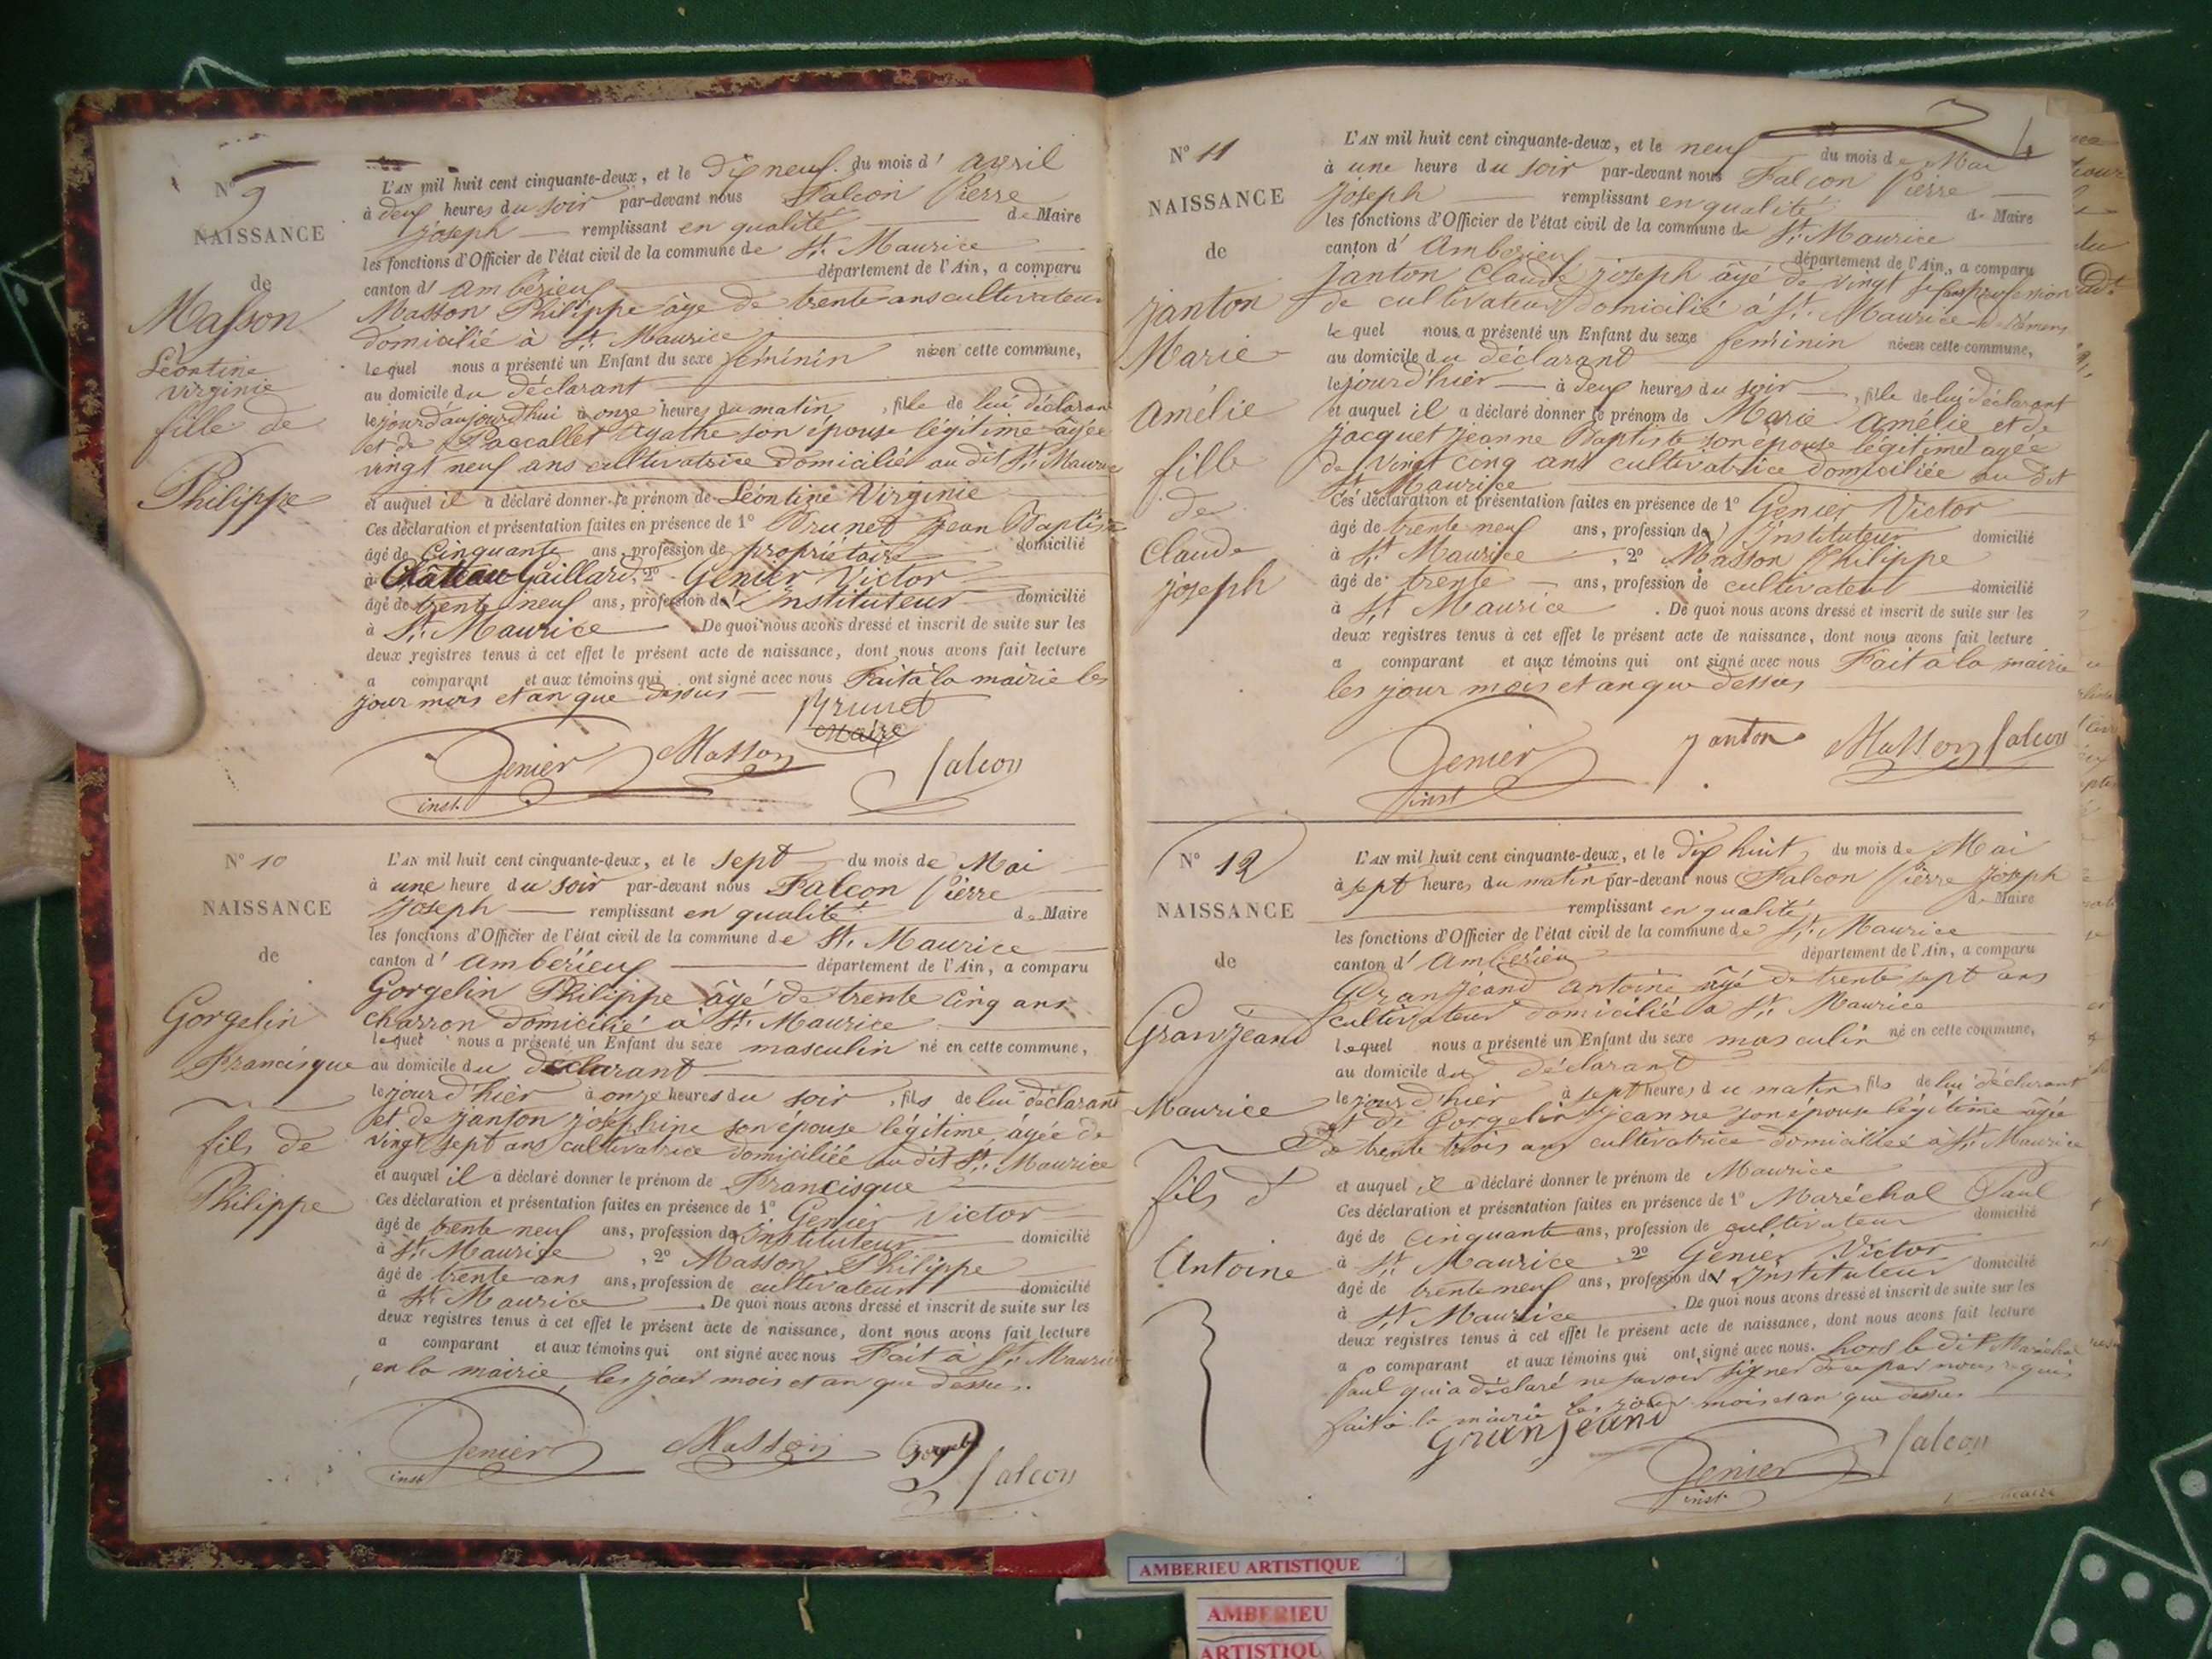 N° 9
NAISSANCE
de
Masson
Léontine
Virginie
fille de
Philippe
L'AN mil huit cent cinquante-deux, et le dix neuf du mois d' avril
à deux heures du soir par-devant nous Falcon Pierre
Joseph remplissant en qualité de Maire
les fonctions d'Officier de l'état civil de la commune de St. Maurice
canton d' Ambérieux département de l'Ain, a comparu
Masson Philippe âge de trente ans cultivateur
domicilié à St. Maurice
lequel nous a présenté un Enfant du sexe féminin née en cette commune,
au domicile du déclarant
le jour d'aujourd'hui à onze heures du matin, fille de lui déclarant
et de Agathe son épouse légitime âgée
vingt neuf ans cultivatrice domiciliée au dit St. Maurice
et auquel il a déclaré donner le prénom de Léontine Virginie
Ces déclaration et présentation faites en présence de 1° Brunet Jean Baptiste
âgé de Cinquante ans, profession de propriétaire domicilié
à Château Gaillard, 2° Genier Victor
âgé de trente neuf ans, profession d' Instituteur domicilié
à St. Maurice De quoi nous avons dressé et inscrit de suite sur les
deux registres tenus à cet effet le présent acte de naissance, dont nous avons fait lecture
a comparant et aux témoins qui ont signé avec nous Fait à la mairie les
jour mois et an que dessus
Brunet
maire
Genier Masson Falcon
inst.
N° 10
NAISSANCE
de
Gorgelin
Francisque
fils de
Philippe
L'AN mil huit cent cinquante-deux, et le sept du mois de Mai
à une heure du soir par-devant nous Falcon Pierre
Joseph remplissant en qualité de Maire
les fonctions d'Officier de l'état civil de la commune de St. Maurice
canton d' Ambérieux département de l'Ain, a comparu
Gorgelin Philippe âgé de trente cinq ans
charron domicilié à St. Maurice
lequel nous a présenté un Enfant du sexe masculin né en cette commune,
au domicile du déclarant
le jour d'hier à onze heures du soir, fils de lui déclarant
et de Janton Joséphine son épouse légitime, âgée de
vingt sept ans cultivatrice domiciliée au dit St. Maurice
et auquel il a déclaré donner le prénom de Francisque
Ces déclaration et présentation faites en présence de 1° Genier Victor
âgé de trente neuf ans, profession d' Instituteur domicilié
à St. Maurice, 2° Masson Philippe
âgé de trente ans ans, profession de cultivateur domicilié
à St. Maurice. De quoi nous avons dressé et inscrit de suite sur les
deux registres tenus à cet effet le présent acte de naissance, dont nous avons fait lecture
a comparant et aux témoins qui ont signé avec nous Fait à St. Maurice
en la mairie, les jour mois et an que dessus.
Genier Masson Falcon
inst
N° 11
NAISSANCE
de
Janton
Marie
Amélie
fille
de
Claude
Joseph
L'AN mil huit cent cinquante-deux, et le neuf du mois de Mai
à une heure du soir par-devant nous Falcon Pierre
Joseph remplissant en qualité de Maire
les fonctions d'Officier de l'état civil de la commune de St. Maurice
canton d' Ambérieux département de l'Ain, a comparu
Janton Claude Joseph âgé de vingt profession
de cultivateur domicilié à St. Maurice
lequel nous a présenté un Enfant du sexe féminin née en cette commune,
au domicile du déclarant
le jour d'hier à deux heures du soir, fille de lui déclarant
et auquel il a déclaré donner le prénom de Marie Amélie et de
Jacquet Jeanne Baptiste son épouse légitime agée
de vingt cinq ans cultivatrice domiciliée au dit
St. Maurice
Ces déclaration et présentation faites en présence de 1° Genier Victor
âgé de trente neuf ans, profession d' Instituteur domicilié
à St. Maurice, 2° Masson Philippe
âgé de trente ans, profession de cultivateur domicilié
à St. Maurice. De quoi nous avons dressé et inscrit de suite sur les
deux registres tenus à cet effet le présent acte de naissance, dont nous avons fait lecture
a comparant et aux témoins qui ont signé avec nous Fait à la mairie
les jour mois et an que dessus
Genier Janton Masson Falcon
inst
N° 12
NAISSANCE
de
Granjeand
Maurice
fils d'
Antoine
L'AN mil huit cent cinquante-deux, et le dix huit du mois de Mai
à sept heures du matin par-devant nous Falcon Pierre Joseph
remplissant en qualité de Maire
les fonctions d'Officier de l'état civil de la commune de St. Maurice
canton d' Ambérieux département de l'Ain, a comparu
Granjeand Antoine âgé de trente sept ans
cultivateur domicilié à St. Maurice
lequel nous a présenté un Enfant du sexe masculin né en cette commune,
au domicile du déclarant
le jour d'hier à sept heures du matin, fils de lui déclarant
et de Gorgelin Jeanne son épouse légitime âgée
de trente trois ans cultivatrice domiciliée à St. Maurice
et auquel il a déclaré donner le prénom de Maurice
Ces déclaration et présentation faites en présence de 1° Maréchal Paul
âgé de Cinquante ans, profession de cultivateur domicilié
à St. Maurice, 2° Genier Victor
âgé de trente neuf ans, profession d' Instituteur domicilié
à St. Maurice. De quoi nous avons dressé et inscrit de suite sur les
deux registres tenus à cet effet le présent acte de naissance, dont nous avons fait lecture
a comparant et aux témoins qui ont signé avec nous. hors le dit Maréchal
Paul qui a déclaré ne savoir signer de ce par nous requis
fait à la mairie les jour mois et an que dessus
Granjeand
Genier Falcon
inst. maire
AMBERIEU ARTISTIQUE
AMBERIEU
ARTISTIQU